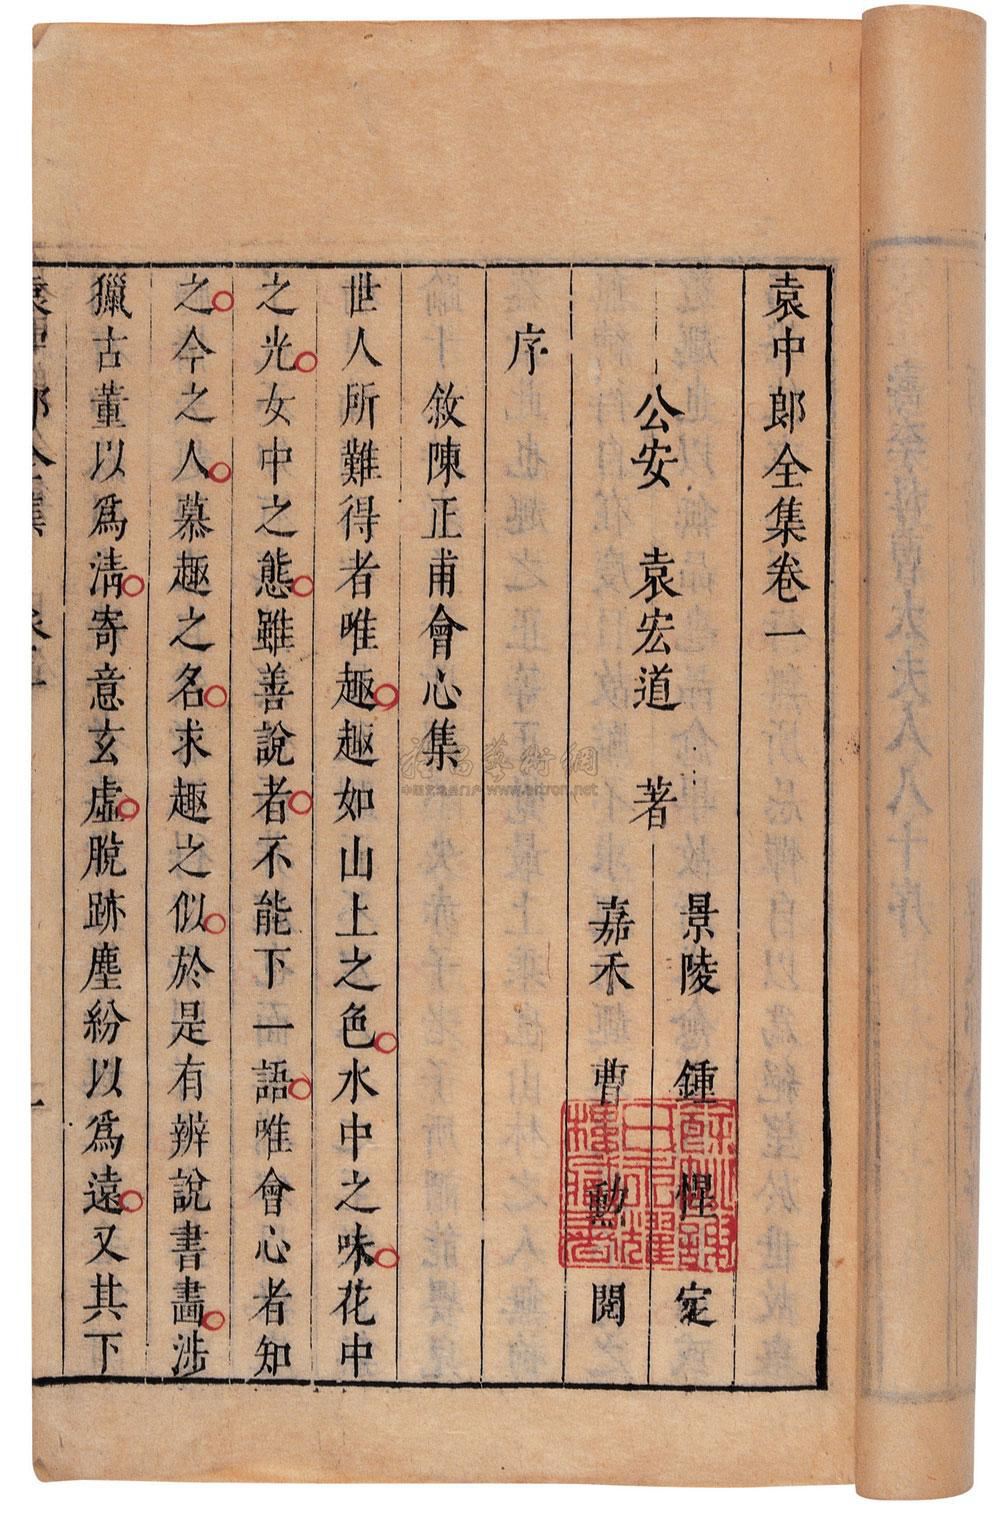 袁中郎全集卷一
公安 袁宏道 著
景陵 鍾惺 定
嘉禾 曹勳 閱
序
敘陳正甫會心集
世人所難得者唯趣趣如山上之色水中之味花中
之光女中之態雖善說者不能下一語唯會心者知
之今之人慕趣之名求趣之似於是有辨說書畵涉
獵古董以爲淸寄意玄虛脫跡塵紛以爲遠又其下